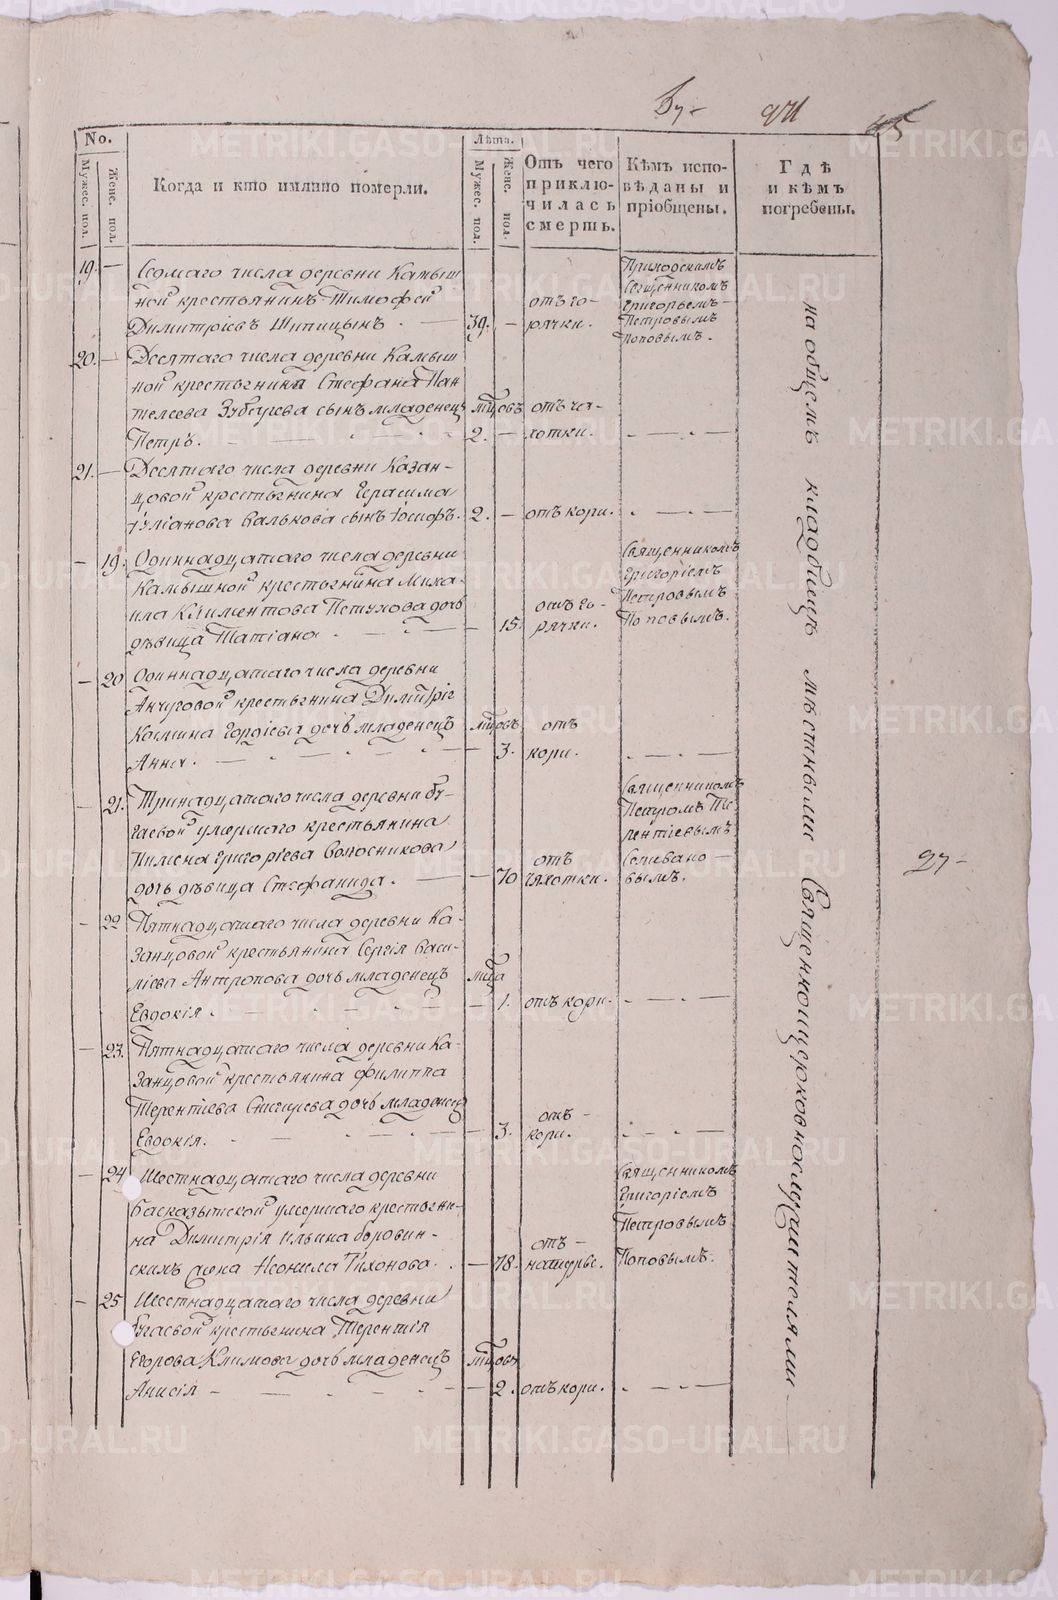 971
45
No.
Мужес. пол.
Женс. пол.
Когда и кто имянно померли.
Лѣта.
Мужес. пол.
Женс. пол.
Отъ чего приклю-
чилась
смерть.
Кѣмъ испо-
вѣданы и
пріобщены.
Гдѣ
и кѣмъ
погребены.
19. —
Седмаго числа деревни Камыш
ной крестьянинъ Тимофей
Димитріевъ Шипицынъ. —
39. —
отъ го-
рячки.
Приходскимъ
Священникомъ
Григорьемъ
Петровымъ
Поповымъ.
20. —
Десятаго числа деревни Камыш
ной крестьянина Стефана Пан
телеева Зубарева сынъ младенецъ
Петръ. —
мцовъ
2. —
отъ ча-
хотки.
21. —
Десятаго числа деревни Казан-
цовой крестьянина Герасима
Іуліанова Валькова сынъ Іосифъ.
2. —
отъ кори.
— 19.
Одиннадцатаго числа деревни
Камышной крестьянина Миха-
ила Климентова Петухова дочь
дѣвица Татіана. —
— 15.
отъ го-
рячки.
Священникомъ
Григоріемъ
Петровымъ
Поповымъ.
— 20
Одиннадцатаго числа деревни
Анчуговой крестьянина Димитріе
Космина Гордіева дочь младенецъ
Анна. —
мцовъ
— 3.
отъ
кори.
— 21.
Тринадцатаго числа деревни Бу-
гаевой умершаго крестьянина
Пимена Григоріева Волосникова
дочь дѣвица Стефанида. —
— 70
отъ
чахотки.
Священникомъ
Петромъ Те-
рентіевымъ
Селивано-
вымъ.
— 22
Пятнадцатаго числа деревни Ка-
занцовой крестьянина Сергія Васи-
ліева Антропова дочь младенецъ
Евдокія. —
мца
— 1.
отъ кори.
— 23.
Пятнадцатаго числа деревни Ка-
занцовой крестьянина Филиппа
Терентіева Снегирева дочь младенецъ
Евдокія. —
— 3.
отъ
кори.
— 24
Шестнадцатаго числа деревни
Басказытской умершаго крестьяни-
на Димитрія Ильина Боровин-
скихъ жена Неонила Тихонова.
— 78.
отъ
натуры.
Священникомъ
Григоріемъ
Петровымъ
Поповымъ.
— 25
Шестнадцатаго числа деревни
Бугаевой крестьянина Терентія
Егорова Климова дочь младенецъ
Анисія —
мцовъ
— 2.
отъ кори.
на общемъ кладбищѣ мѣстными Священноцерковнослужителями
27
METRIKI.GASO-URAL.RU